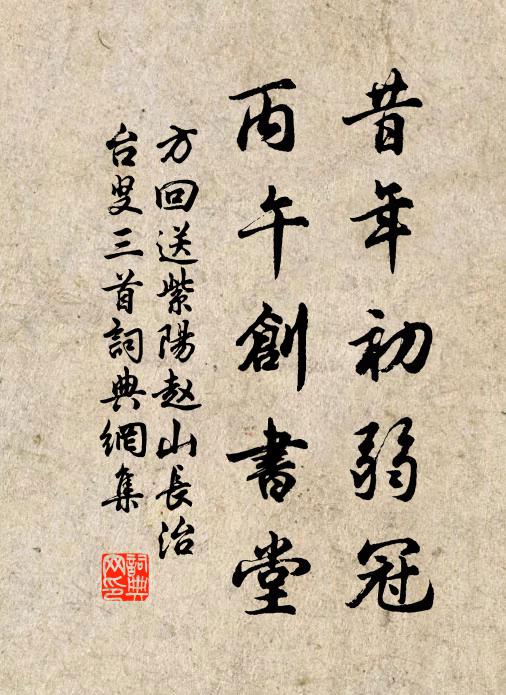 昔年初弱冠
丙午創書堂
方回送紫陽赵山長治
台叟三首詞典網集
詞典网印